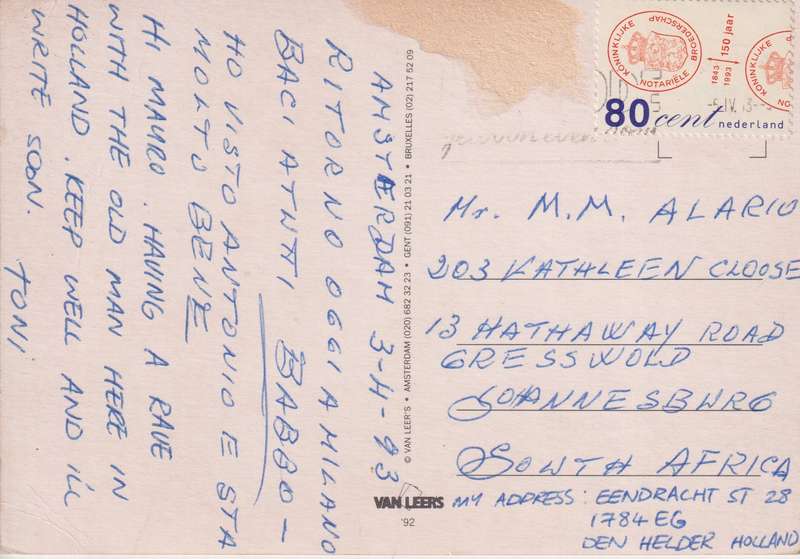 AMSTERDAM 3-4-93
RITORNO OGGI A MILANO
BACI ATUTTI BABBO -
HO VISTO ANTONIO E STA
MOLTO BENE
HI MAURO. HAVING A RAVE
WITH THE OLD MAN HERE IN
HOLLAND. KEEP WELL AND I'LL
WRITE SOON.
TONI
© VAN LEER'S • AMSTERDAM (020) 682 32 23 • GENT (091) 21 03 21 • BRUXELLES (02) 217 52 09
VAN LEER'S
'92
KONINKLIJKE NOTARIËLE BROEDERSCHAP
1843 1993
150 jaar
KONINKLIJKE
80 cent nederland
Mr. M.M. ALARIO
203 KATHLEEN CLOOSE
13 HATHAWAY ROAD
GRESSWOLD
JOHANNESBURG
SOUTH AFRICA
MY ADDRESS: EENDRACHT ST 28
1784 EG
DEN HELDER HOLLAND